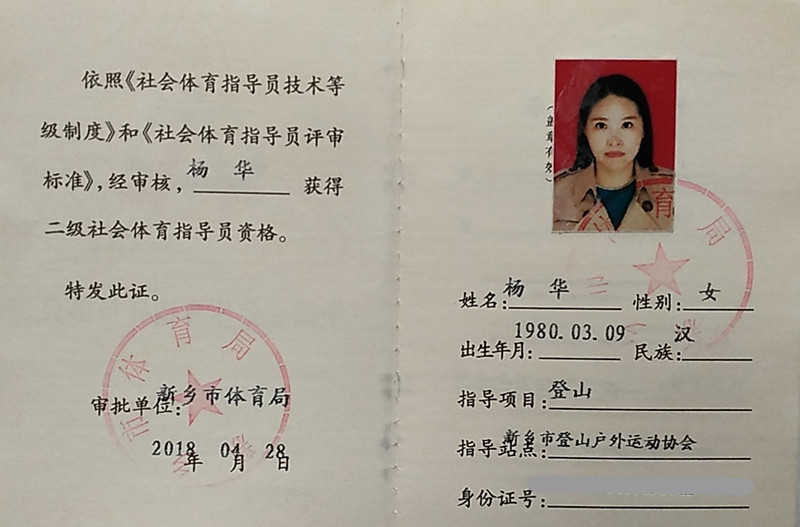 依照《社会体育指导员技术等
级制度》和《社会体育指导员评审
标准》,经审核,杨 华 获得
二级社会体育指导员资格。
特发此证。
市体育局
审批单位:新乡市体育局
2018年 04月 28日
育局
姓名:杨 华 性别:女
出生年月:1980.03.09 民族:汉
指导项目:登山
指导站点:新乡市登山户外运动协会
身份证号: